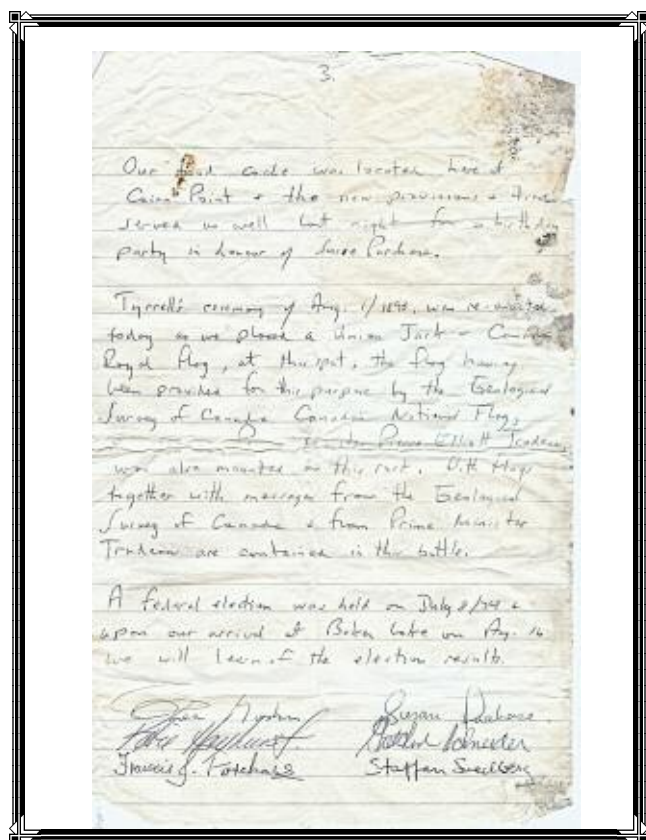 3.
Our food cache was located here at
Cairn Point + the new provisions +
served us well last night for a birthday
party in honour of Purchase.
Tyrrell's ceremony of Aug. 1/1893, was re-enacted
today as we placed a Union Jack +
Royal flag, at this spot, the flag having
been provided for this purpose by the Geological
Survey of Canada Canadian National Flag,
Prime Elliott Trudeau,
was also mounted on this spot. Both flags
together with messages from the Geological
Survey of Canada & from Prime Minister
Trudeau are contained in this bottle.
A federal election was held on July 8/74 &
upon our arrival at Baker Lake on Aug. 16
we will learn of the election results.
Susan Purchase.
Francis J. Purchase
Staffan Svedberg